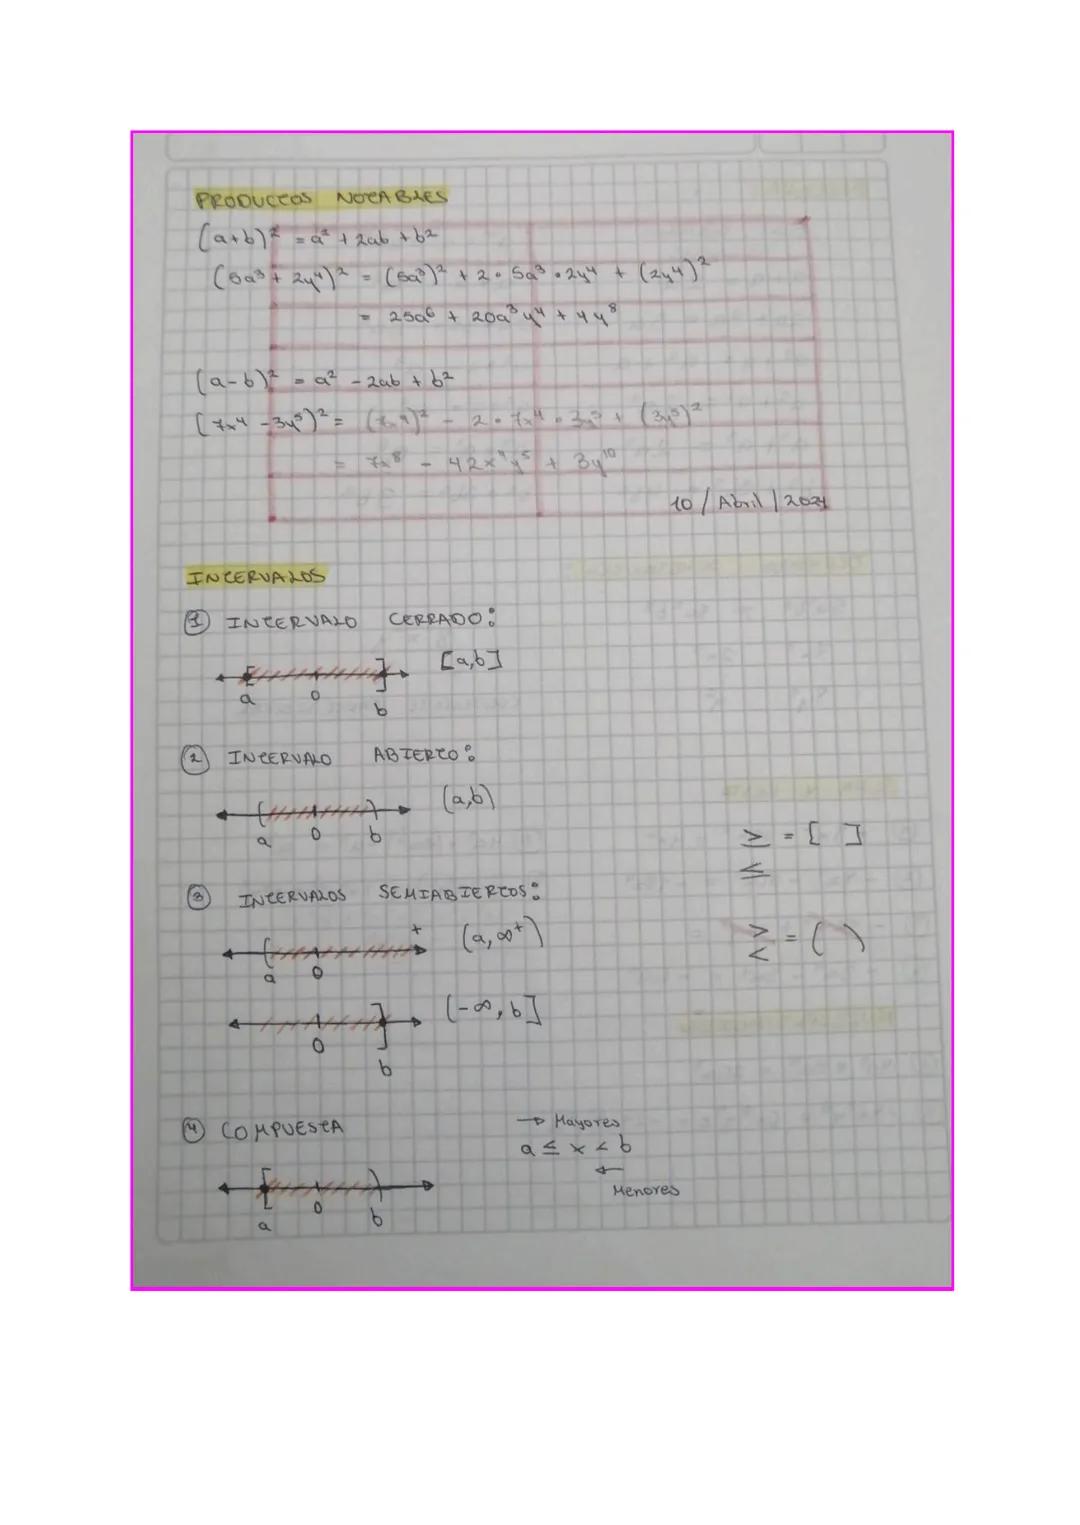 PRODUCTOS NOTABLES
(a+b)² = a² + 2ab + b²
(5a³ + 2y⁴)² = (5a³)² + 2 • 5a³ • 2y⁴ + (2y⁴)²
= 25a⁶ + 20a³y⁴ + 4y⁸
(a-b)² = a² - 2ab + b²
(7x⁴ - 3y⁵)² = (7x⁴)² - 2 • 7x⁴ • 3y⁵ + (3y⁵)²
= 7x⁸ - 42x⁴y⁵ + 3y¹⁰
10 / Abril / 2021
INTERVALOS
1 INTERVALO CERRADO:
[a,b]
a 0 b
2 INTERVALO ABIERTO:
(a,b)
a 0 b
≥ = [ ]
≤
3 INTERVALOS SEMIABIERTOS:
+ (a, ∞⁺)
a 0
> = ( )
<
(-∞, b]
0 b
4 COMPUESTA
→ Mayores
a ≤ x < b
←
Menores
a 0 b